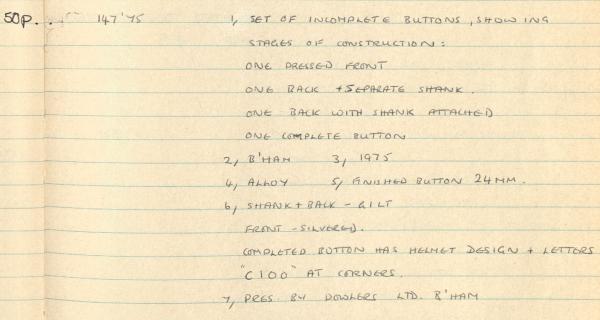 50p. 147'75 1, SET OF INCOMPLETE BUTTONS, SHOWING
STAGES OF CONSTRUCTION:
ONE PRESSED FRONT
ONE BACK + SEPARATE SHANK.
ONE BACK WITH SHANK ATTACHED
ONE COMPLETE BUTTON
2, B'HAM 3, 1975
4, ALLOY 5, FINISHED BUTTON 24MM.
6, SHANK + BACK - GILT
FRONT - SILVERED.
COMPLETED BUTTON HAS HELMET DESIGN + LETTERS
"C100" AT CORNERS.
7, PRES. BY DOWLERS LTD. B'HAM